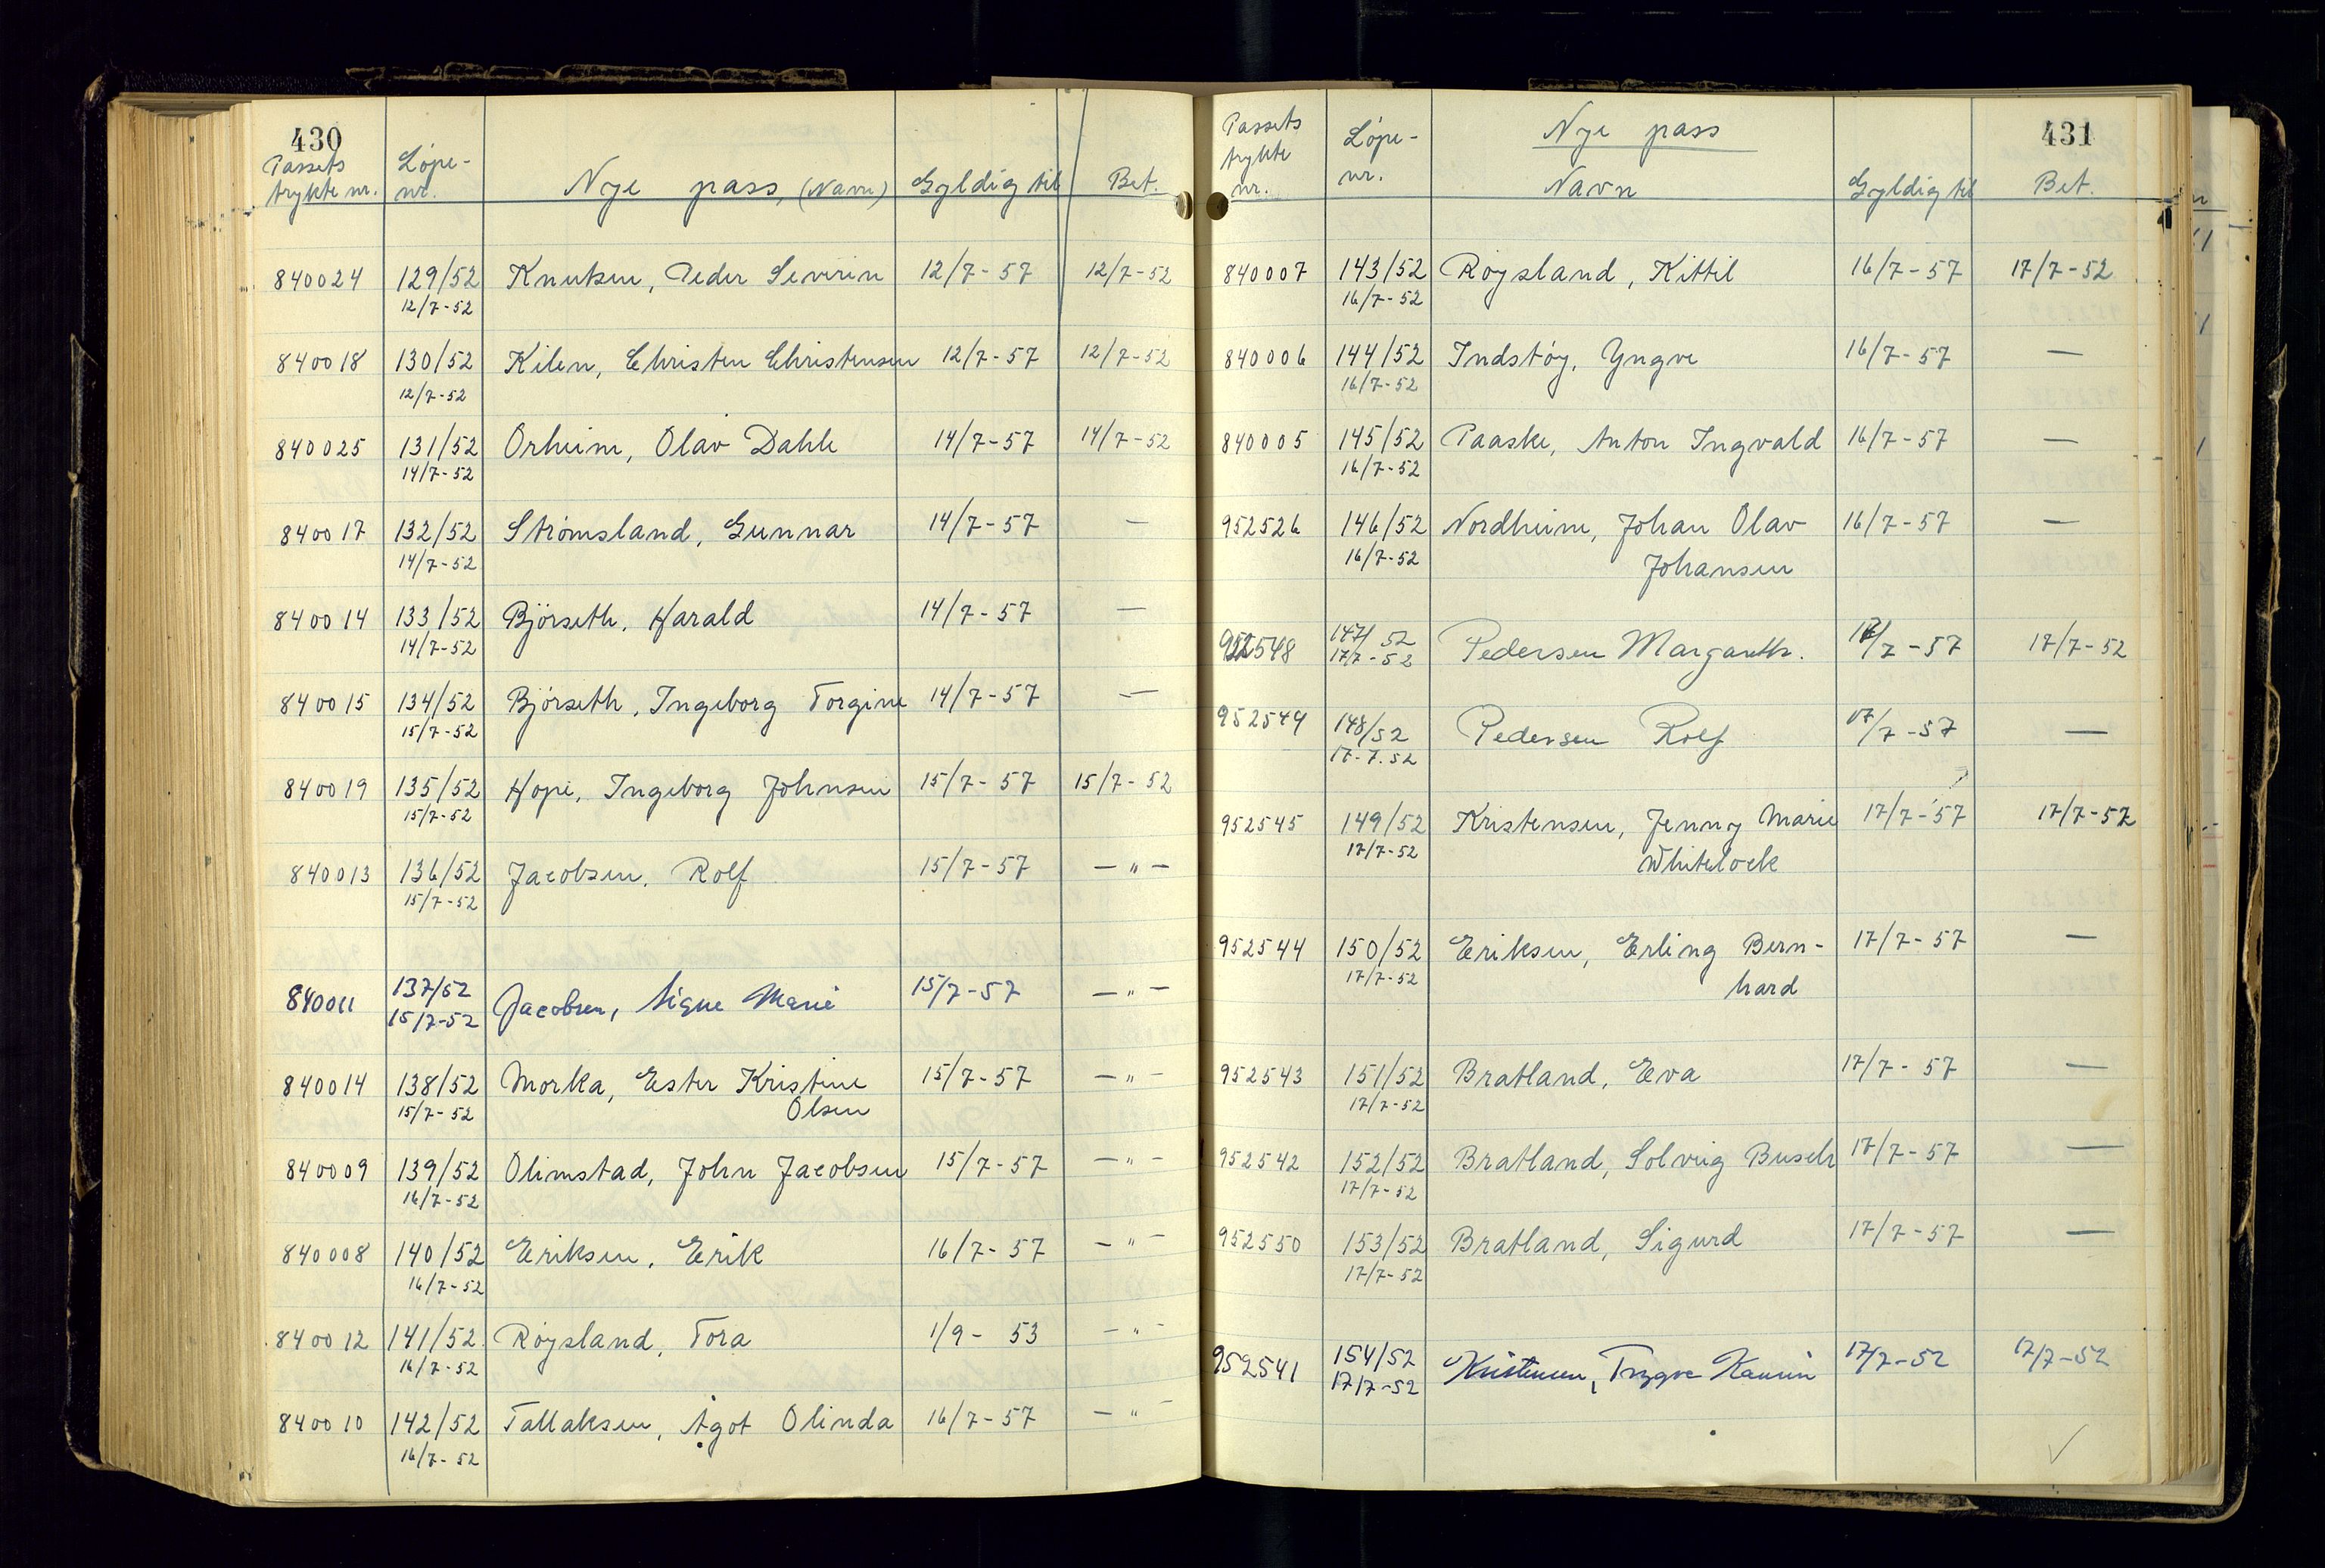 430
Passets trykte nr. Löpe-nr. Nye pass, (Navn) Gyldig til Bet.
840024 129/52 Knutsen, Peder Severin 12/7-57 12/7-52
12/7-52
840018 130/52 Kilen, Christen Christensen 12/7-57 12/7-52
12/7-52
840025 131/52 Orheim, Olav Dahle 14/7-57 14/7-52
14/7-52
840017 132/52 Strömsland, Gunnar 14/7-57 —
14/7-52
840014 133/52 Björseth, Harald 14/7-57 —
14/7-52
840015 134/52 Björseth, Ingeborg Torgine 14/7-57 —
15/7-52
840019 135/52 Hope, Ingeborg Johnsen 15/7-57 15/7-52
15/7-52
840013 136/52 Jacobsen, Rolf 15/7-57 — " —
15/7-52
840011 137/52 Jacobsen, Signe Marie 15/7-57 — " —
15/7-52
840014 138/52 Morka, Ester Kristine 15/7-57 — " —
15/7-52 Olsen
840009 139/52 Olimstad, John Jacobsen 15/7-57 — " —
16/7-52
840008 140/52 Eriksen, Erik 16/7-57 — " —
16/7-52
840012 141/52 Röysland, Tora 1/9-53 — " —
16/7-52
840010 142/52 Tallaksen, Ågot Olinda 16/7-57 — " —
16/7-52
431
Passets trykte nr. Löpe-nr. Nye pass
Navn Gyldig til Bet.
840007 143/52 Röysland, Kittil 16/7-57 17/7-52
16/7-52
840006 144/52 Indstöy, Yngve 16/7-57 —
16/7-52
840005 145/52 Paaske, Anton Ingvald 16/7-57 —
16/7-52
952526 146/52 Nordheim, Johan Olav 16/7-57 —
16/7-52 Johansen
952548 147/52 Pedersen Margareth. 17/7-57 17/7-52
17/7-52
952549 148/52 Pedersen Rolf 17/7-57 —
17-7.52
952545 149/52 Kristensen, Jenny Marie 17/7-57 17/7-52
17/7-52 Whitelock
952544 150/52 Eriksen, Erling Bern- 17/7-57 —
17/7-52 hard
952543 151/52 Bratland, Eva 17/7-57 —
17/7-52
952542 152/52 Bratland, Solveig Busch 17/7-57 —
17/7-52
952550 153/52 Bratland, Sigurd 17/7-57 —
17/7-52
952541 154/52 Kristensen, Trygve 17/7-52 17/7-52
17/7-52